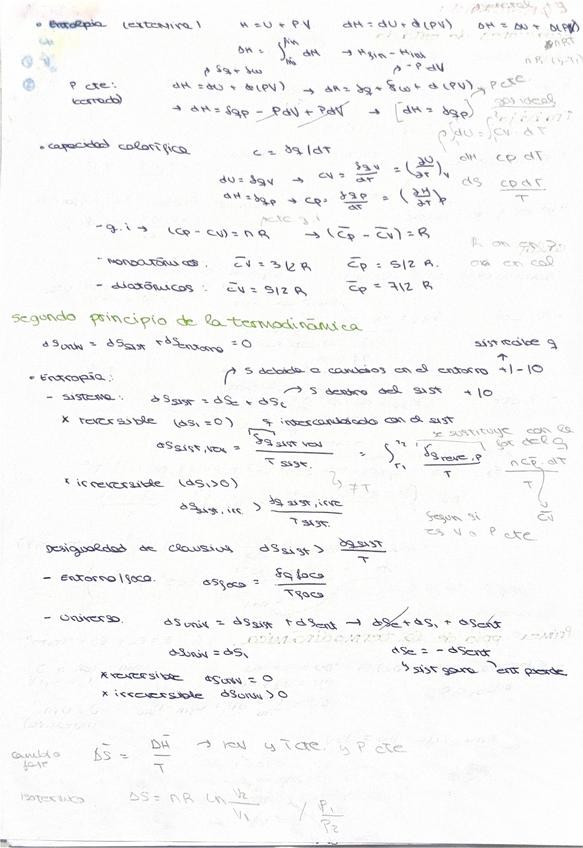 • Entalpia (extensiva) H = U + PV dH = dU + d(PV) ΔH = ΔU + Δ(PV)
ΔnRT
ΔH = ∫ dH → Hfin - Hini
nR(
δq + δw -PdV
P cte: dH = dU + d(PV) → dH = δq + δw + d(PV) P cte
(cerrado) → dH = δqp - PdV + PdV → [dH = δqp]
gas ideal
dU = CV · dT
• capacidad calorífica c = δq/dT dH CP dT
dU = δqv → CV = δqv/dT = (∂U/∂T)v
dS CP dT/T
dH = δqp → CP = δqp/dT = (∂H/∂T)p
- g.i → (CP - CV) = nR → (C̄p - C̄v) = R
- monoatómicos: C̄v = 3/2 R C̄p = 5/2 R.
- diatómicos: C̄v = 5/2 R C̄p = 7/2 R
segundo principio de la termodinámica
dSuniv = dSsist + dSentorno = 0 sist recibe q
• Entropía: S debida a cambios en el entorno +/-/0
- sistema: dSsist = dSe + dSi S dentro del sist +/0
* reversible (dSi = 0) q intercambiado con el sist
se sustituye con la for del q
dSsist,rev = δq sist rev/T sist. = ∫T1 T2 δqrev,P/T nC̄P dT/T
* irreversible (dSi > 0) ≠T
C̄v
dSsist,irr > δq sist,irre/T sist.
según si
es V o P cte
Desigualdad de clausius dSsist > δqsist/T
- Entorno/foco. dSfoco = δqfoco/Tfoco
- Universo. dSuniv = dSsist + dSent → dSe + dSi + dSent
dSuniv = dSi dSe = - dSent
sist gana ent pierde
* reversible dSuniv = 0
* irreversible dSuniv > 0
cambio
fase ΔS̄ = ΔH̄/T → rev y T cte. y P cte
isotermo ΔS = nR ln V2/V1 / P1/P2